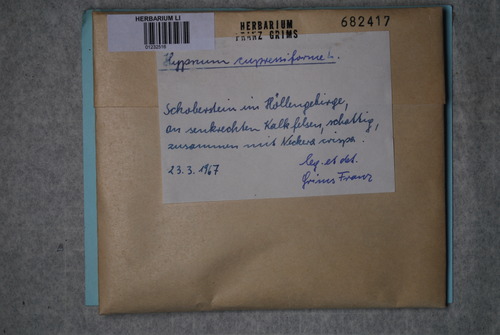 HERBARIUM LI
01232516
HERBARIUM
FRANZ GRIMS
682417
Hypnum cupressiforme L.
Schoberstein im Höllengebirge,
an senkrechten Kalkfelsen, schattig,
zusammen mit Neckera crispa.
23.3.1967
leg. et det.
Grims Franz